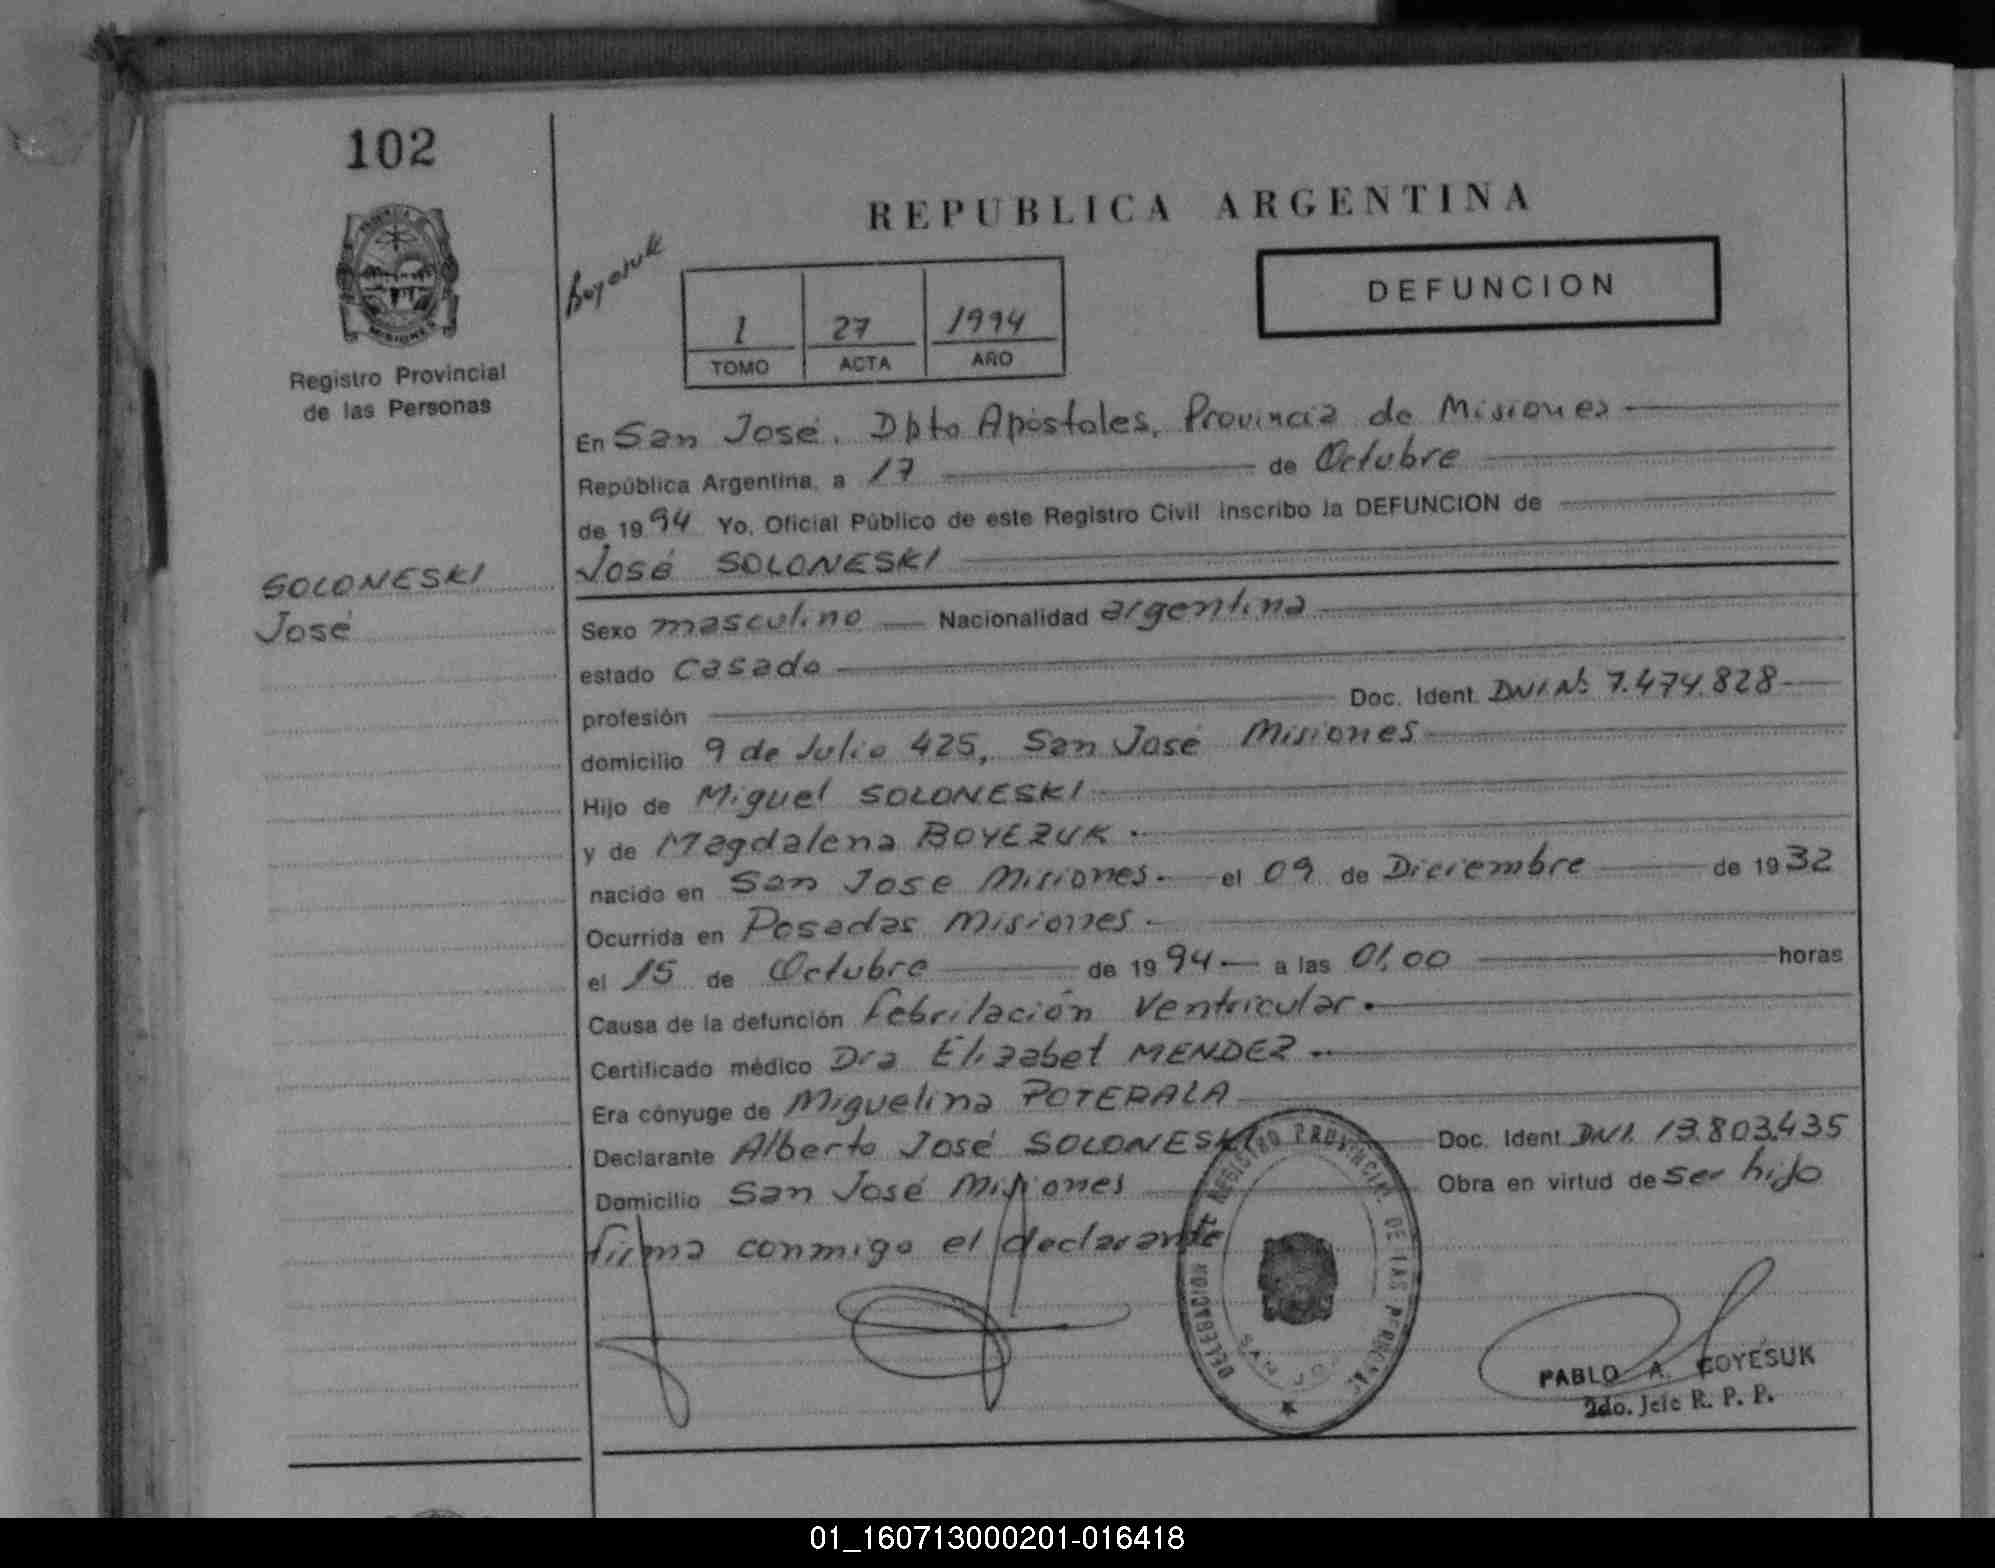 102
REPUBLICA ARGENTINA
Boyesuk
DEFUNCION
1 27 1994
TOMO ACTA AÑO
Registro Provincial
de las Personas
En San José, Dpto Apóstoles, Provincia de Misiones
República Argentina, a 17 de Octubre
de 1994 Yo, Oficial Público de este Registro Civil inscribo la DEFUNCION de
José SOLONESKI
SOLONESKI
José
Sexo masculino Nacionalidad argentina
estado casado
profesión Doc. Ident. DNI Nº 7.474.828
domicilio 9 de Julio 425, San José Misiones
Hijo de Miguel SOLONESKI
y de Magdalena BOYEZUK.
nacido en San Jose Misiones. el 09 de Diciembre de 1932
Ocurrida en Posadas Misiones.
el 15 de Octubre de 1994 a las 01,00 horas
Causa de la defunción febrilación Ventricular.
Certificado médico Dra Elizabet MENDEZ..
Era cónyuge de Miguelina POTERALA
Declarante Alberto José SOLONESKI Doc. Ident DNI. 13.803.435
Domicilio San José Misiones Obra en virtud de ser hijo
firma conmigo el declarante
DELEGACION REGISTRO PROVINCIAL DE LAS PERSONAS
SAN JO
PABLO A. BOYESUK
2do. Jefe R. P. P.
01_160713000201-016418